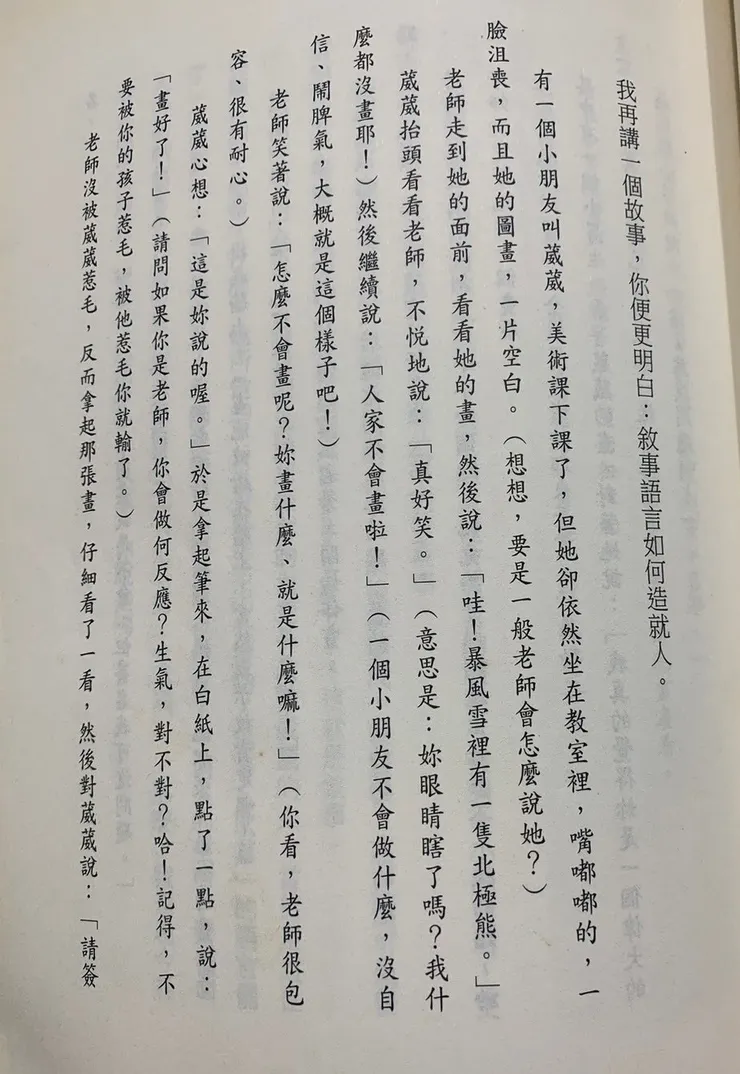 我再講一個故事，你便更明白：敘事語言如何造就人。
有一個小朋友叫葳葳，美術課下課了，但她卻依然坐在教室裡，嘴嘟嘟的，一
臉沮喪，而且她的圖畫，一片空白。（想想，要是一般老師會怎麼說她？）
老師走到她的面前，看看她的畫，然後說：「哇！暴風雪裡有一隻北極熊。」
葳葳抬頭看看老師，不悅地說：「真好笑。」（意思是：妳眼睛瞎了嗎？我什
麼都沒畫耶！）然後繼續說：「人家不會畫啦！」（一個小朋友不會做什麼，沒自
信、鬧脾氣，大概就是這個樣子吧！）
老師笑著說：「怎麼不會畫呢？妳畫什麼、就是什麼嘛！」（你看，老師很包
容、很有耐心。）
葳葳心想：「這是妳說的喔。」於是拿起筆來，在白紙上，點了一點，說：
「畫好了！」（請問如果你是老師，你會做何反應？生氣，對不對？哈！記得，不
要被你的孩子惹毛，被他惹毛你就輸了。）
老師沒被葳葳惹毛，反而拿起那張畫，仔細看了一看，然後對葳葳說：「請簽